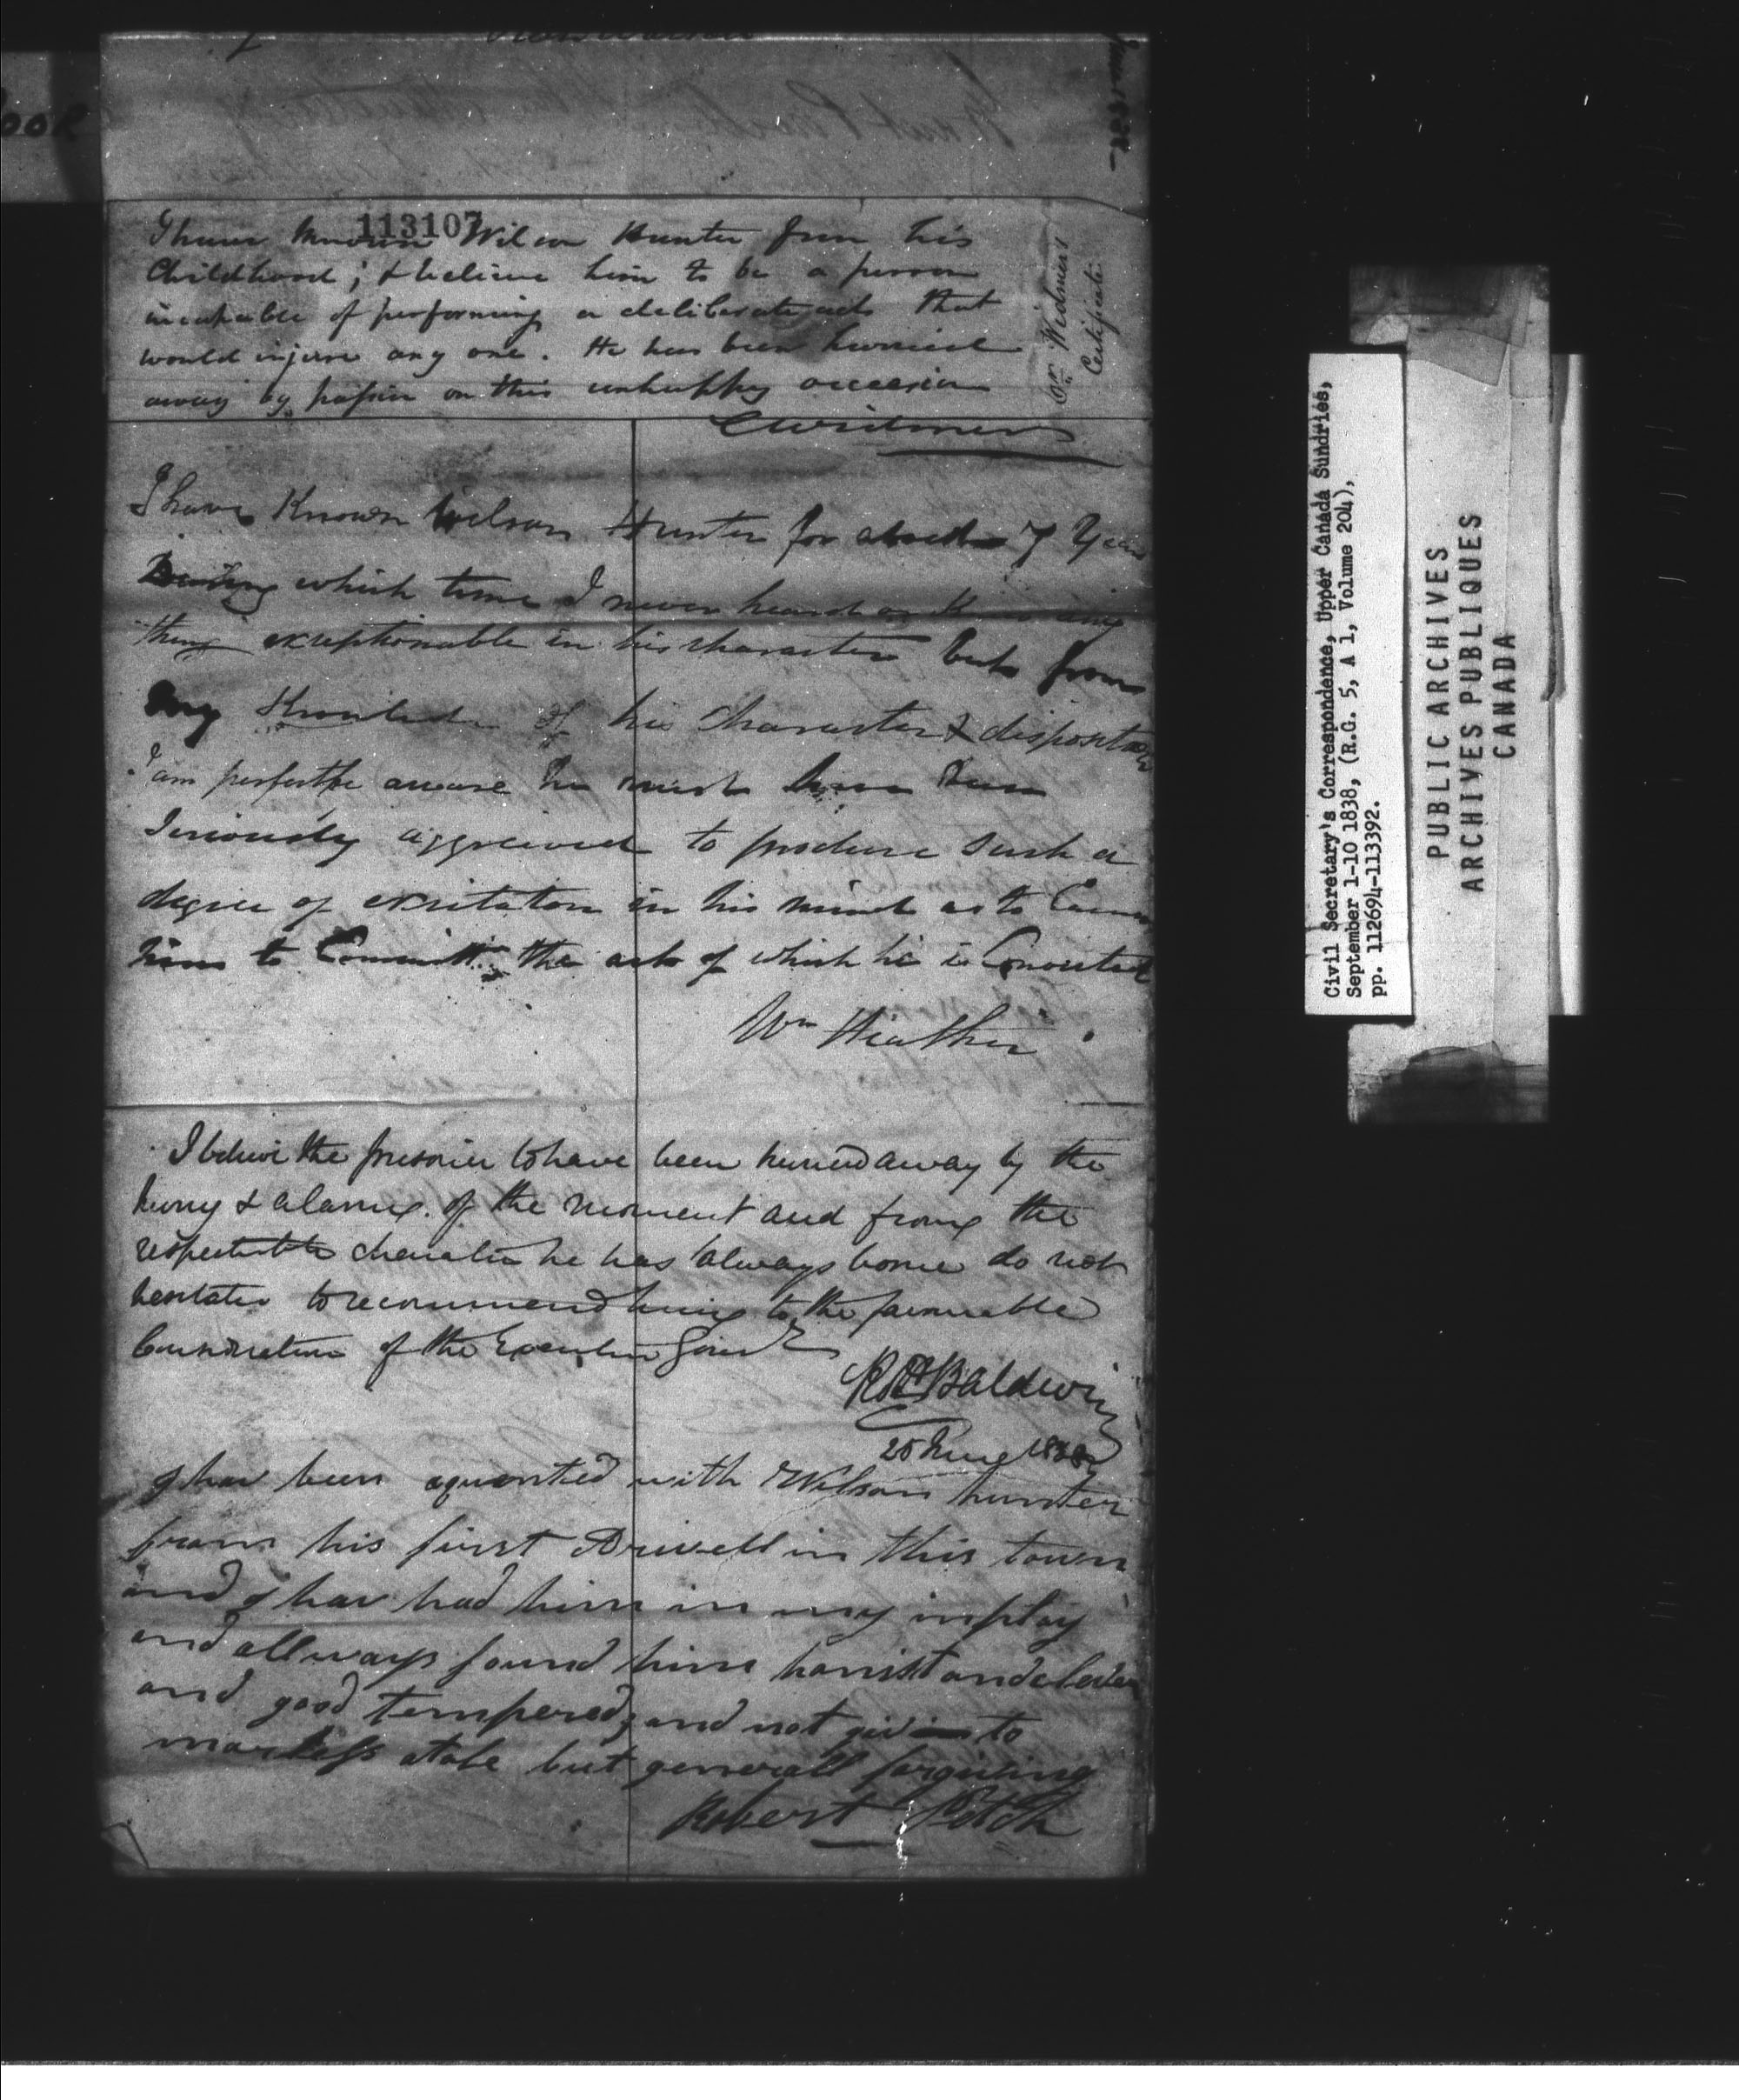 113107
I have known Wilson Hunter from his
Childhood; & believe him to be a person
incapable of performing a deliberate act that
would injure any one. He has been hurried
away by passion on this unhappy occasion
CWidmer
Dr Widmer's
Certificate
I have Known Wilson Hunter for about 7 Years
During which time I never heard or any
thing exceptionable in his character but from
my Knowledge of his Character & disposition
I am perfectly aware he must have been
Seriously aggreived to produce Such a
degree of excitation in his mind as to Cause
him to Committ the act of which he is Convicted
Wm Heather
I believe the prisoner to have been hurried away by the
hurry & alarm of the moment and from the
respectable character he has always borne do not
hesitate to recommend him to the favourable
Consideration of the Executive Govt
Baldwin
25 Aug 1838
I hav been aquantied with Wilson hunter
from his first Arivell in this town
and I hav had him in my imploy
and allways found him honist and
and good tempered, and not givin to
but generall forgiving
Robert
Civil Secretary's Correspondence, Upper Canada Sundries,
September 1-10 1838, (R.G. 5, A 1, Volume 204),
pp. 112694-113392.
PUBLIC ARCHIVES
ARCHIVES PUBLIQUES
CANADA